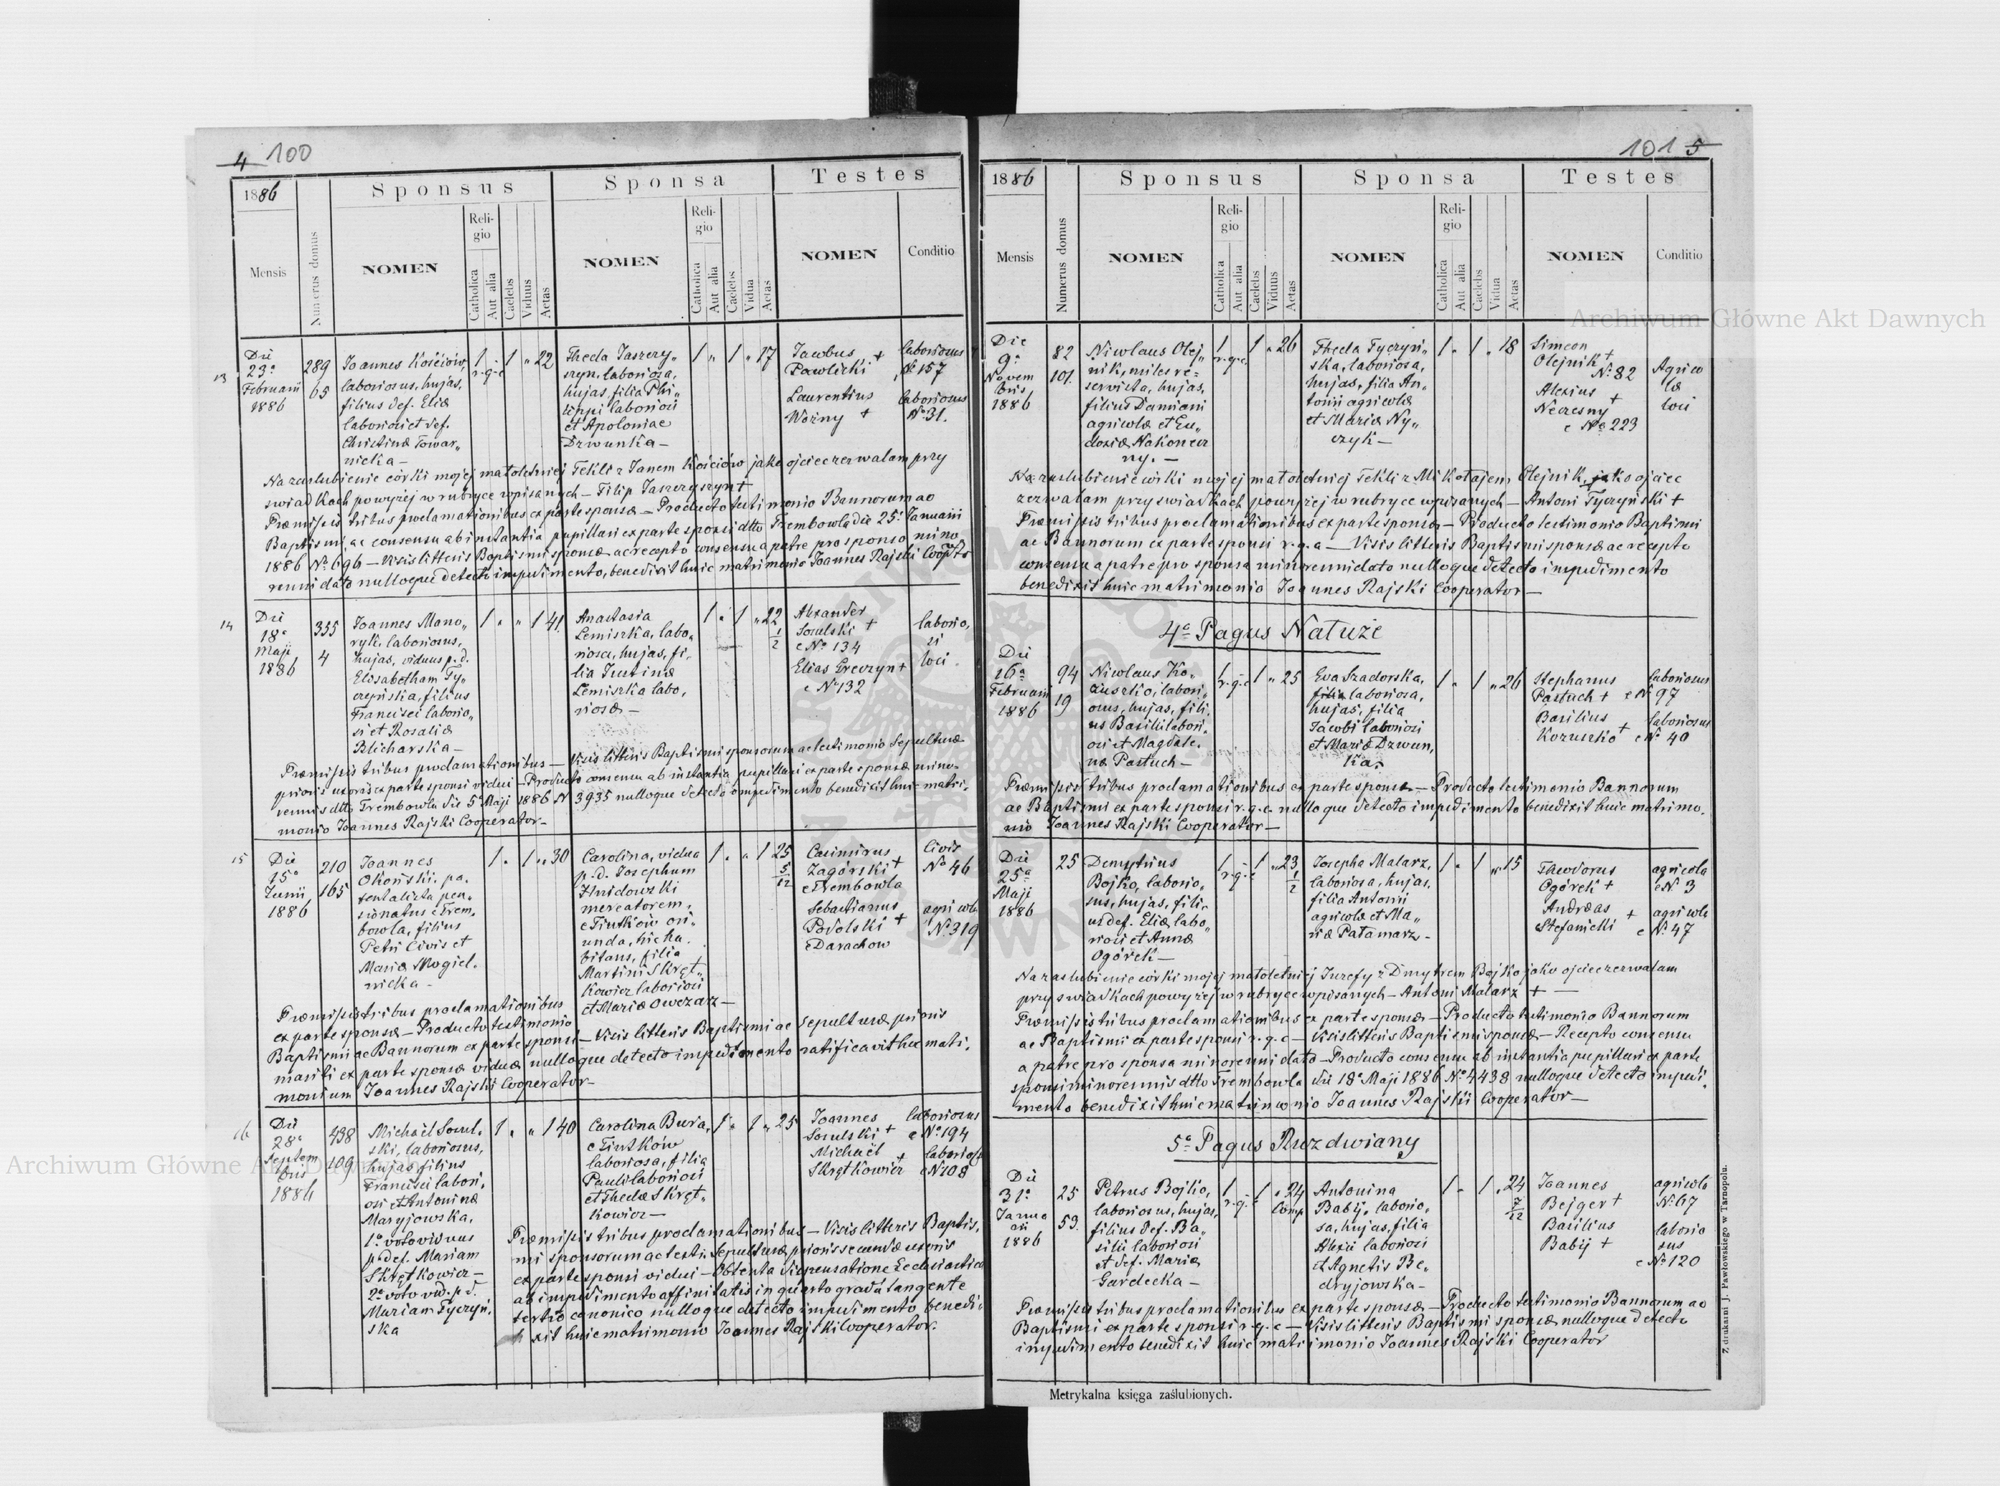 4 100
1886
Sponsus
Sponsa
Testes
Mensis
Numerus domus
NOMEN
Religio
Catholica
Aut alia
Caelebs
Viduus
Aetas
NOMEN
Religio
Catholica
Aut alia
Caelebs
Vidua
Aetas
NOMEN
Conditio
13
Die
23a
Februarii
1886
289
65
Joannes Kościów,
laboriosus, hujas,
filius def. Eliæ
laboriosi et def.
Christinæ Towar„
nicka —
1
r.g.c
1 „ 22
Thecla Jaszczy„
szyn, laboriosa,
hujas, filia Phi„
lippi laboriosi
et Apoloniae
Dzwunka —
1 „ 1 „ 17
Jacobus +
Pawlicki
Laurentius
Woźny +
laboriosus
№ 157
laboriosus
№ 31.
Na zaślubienie córki mojej małoletniej Tekli z Janem Kościów jako ojciec zezwalam przy
świadkach powyżej w rubryce wpisanych — Filip Jaszczyszyn +
Præmissis tribus proclamationibus ex parte sponsæ — Producto testimonio Bannorum ac
Baptismi, ac consensu ab instantia pupillari ex parte sponsi dtto Trembowla die 25a Januarii
1886 № 696 — Visis litteris Baptismi sponsæ ac recepto consensu a patre pro sponsa mino„
renni dato nulloque detecto impedimento, benedixit huic matrimonio Joannes Rajski Cooptor
14
Die
18a
Maji
1886
355
4
Joannes Mano„
ryk, laboriosus,
hujas, viduus p.d.
Elisabetham Ty„
czyńska, filius
Francisci laborio„
si et Rosaliæ
Blicharska —
1 „ „ 1 41
Anastasia
Lemiszka, labo„
riosa, hujas, fi„
lia Justinæ
Lemiszka labo„
riosæ —
1 „ 1 „ 22
1/2
Alexander
Soculski +
c № 134
Elias Greczyn +
c № 132
laborio„
si
loci
Præmissis tribus proclamationibus — Visis litteris Baptismi sponsorum ac testimonio Sepulturæ
prioris uxoris ex parte sponsi vidui — Producto consensu ab instantia pupillari ex parte sponsæ mino„
rennis dtto Trembowla die 5a Maji 1886 № 3935 nulloque detecto impedimento benedixit huic matri„
monio Joannes Rajski Cooperator —
15
Die
15a
Junii
1886
210
165
Joannes
Okoński, pa„
tentalista pen„
sionatus e Trem„
bowla, filius
Petri Civis et
Mariæ Mogiel„
nicka —
1 „ 1 „ 30
Carolina, vidua
p.d. Josephum
Hnidowski
mercatorem,
e Tiutków ori„
unda, hicha„
bitans, filia
Martini Skręt„
kowicz laboriosi
et Mariæ Owczarz —
1 „ „ 1 25
5/12
Casimirus +
Zagórski
e Trembowla
Sebastianus
Podolski +
e Darachow
Civis
№ 46
agricola
№ 319
Præmissis tribus proclamationibus
ex parte sponsæ — Producto testimonio
Baptismi ac Bannorum ex parte sponsi — Visis litteris Baptismi ac sepulturæ prioris
mariti ex parte sponsæ viduæ nulloque detecto impedimento ratificavit huc matri„
monium Joannes Rajski Cooperator —
16
Die
28a
Septem
bris
1886
438
109
Michaël Socul„
ski, laboriosus,
hujas, filius
Francisci labori„
osi et Antoninæ
Maryjowska,
1o voto viduus
p. def. Mariam
Skrętkowicz —
2o voto vid. p.d.
Mariam Tyczyń„
ska
1 „ „ 1 40
Carolina Bura,
e Tiutków
laboriosa, filia
Pauli laboriosi
et Theclæ Skręt„
kowicz —
1 „ 1 „ 25
Joannes
Soculski +
Michaël +
Skrętkowicz
laboriosus
c № 194
laboriosus
c № 108
Præmissis tribus proclamationibus — Visis litteris Baptis„
mi sponsorum ac testi. Sepulturæ prioris secundæ uxoris
ex parte sponsi vidui — Obtenta dispensatione Ecclesiastica
ab impedimento affinitatis in quarto gradu tangente
tertio canonico nulloque detecto impedimento benedi„
xit huic matrimonio Joannes Rajski Cooperator.
101 5
1886
Sponsus
Sponsa
Testes
Mensis
Numerus domus
NOMEN
Religio
Catholica
Aut alia
Caelebs
Viduus
Aetas
NOMEN
Religio
Catholica
Aut alia
Caelebs
Vidua
Aetas
NOMEN
Conditio
Die
9a
Novem
bris
1886
82
101.
Nicolaus Olej„
nik, miles re=
servista, hujas,
filius Damiani
agricolæ et Eu„
doxiæ Nakonecz
ny. —
1
r.g.c
1 „ 26
Thecla Tyczyń„
ska, laboriosa,
hujas, filia An„
tonii agricolæ
et Mariæ Ny„
czyk —
1 „ 1 „ 18
Simeon
Olejnik +
№ 82
Alexius +
Neczesny
c № 223
Agrico
læ
loci
Na zaślubienie córki mojej małoletniej Tekli z Mikołajem Olejnik, jako ojciec
zezwalam przy świadkach powyżej w rubryce wpisanych — Antoni Tyczyński +
Præmissis tribus proclamationibus ex parte sponsæ — Producto testimonio Baptismi
ac Bannorum ex parte sponsi r.g.c — Visis litteris Baptismi sponsæ ac recepto
consensu a patre pro sponsa minorenni dato nulloque detecto impedimento
benedixit huic matrimonio Joannes Rajski Cooperator —
4o Pagus Natuże
Die
16a
Februarii
1886
94
19
Nicolaus Ko„
zuszko, labori„
osus, hujas, fili„
us Basilii labori„
osi et Magdale„
næ Pastuch —
1
r.g.c
1 „ 25
Eva Szadorska,
filia laboriosa,
hujas, filia
Jacobi laboriosi
et Mariæ Dzwun„
ka.
1 „ 1 „ 26
Stephanus
Pastuch +
Basilius +
Kozuszko
laboriosus
c № 97
laboriosus
c № 40
Præmissis tribus proclamationibus ex parte sponsæ — Producto testimonio Bannorum
ac Baptismi ex parte sponsi r.g.c. nulloque detecto impedimento benedixit huic matrimo„
nio Joannes Rajski Cooperator —
Die
25a
Maji
1886
25
Demytrius
Bojko, laborio„
sus, hujas, fili„
us def. Eliæ labo„
riosi et Annæ
Ogórek —
1
r.g.c
1 „ 23
1/2
Josepha Malarz,
laboriosa, hujas,
filia Antonii
agricolæ et Ma„
riæ Patamarz —
1 „ 1 „ 15
Theodorus
Ogórek +
Andreas +
Stefanicki
agricola
c № 3
agricola
c № 47
Na zaślubienie córki mojej małoletniej Jurefy z Dmytrem Bojko jako ojciec zezwalam
przy świadkach powyżej w rubryce wpisanych — Antoni Malarz + —
Præmissis tribus proclamationibus ex parte sponsæ — Producto testimonio Bannorum
ac Baptismi ex parte sponsi r.g.c — Visis litteris Baptismi sponsæ — Recepto consensu
a patre pro sponsa minorenni dato — Producto consensu ab instantia pupillari ex parte
sponsi minorennis dtto Trembowla die 18a Maji 1886 № 4438 nulloque detecto impedi„
mento benedixit huic matrimonio Joannes Rajski Cooperator —
5o Pagus Ruzdwiany
Die
31a
Janua
rii
1886
25
53.
Petrus Bojko,
laboriosus, hujas,
filius def. Ba„
silii laboriosi
et def. Mariæ
Gardecka —
1
r.g.c
1 „ 24
comp
Antonina
Babij, laborio„
sa, hujas, filia
Alexii laboriosi
et Agnetis Be„
dryjowska —
1 „ 1 „ 24
7/12
Joannes
Bejger +
Basilius
Babij +
agricola
№ 67
laborio
sus
c № 120
Præmissis tribus proclamationibus ex parte sponsæ — Producto testimonio Bannorum ac
Baptismi ex parte sponsi r.g.c — Visis litteris Baptismi sponsæ nulloque detecto
impedimento benedixit huic matrimonio Joannes Rajski Cooperator
Metrykalna księga zaślubionych.
Z drukarni J. Pawłowskiego w Tarnopolu.
Archiwum Główne Akt Dawnych
Archiwum Główne Akt Dawnych